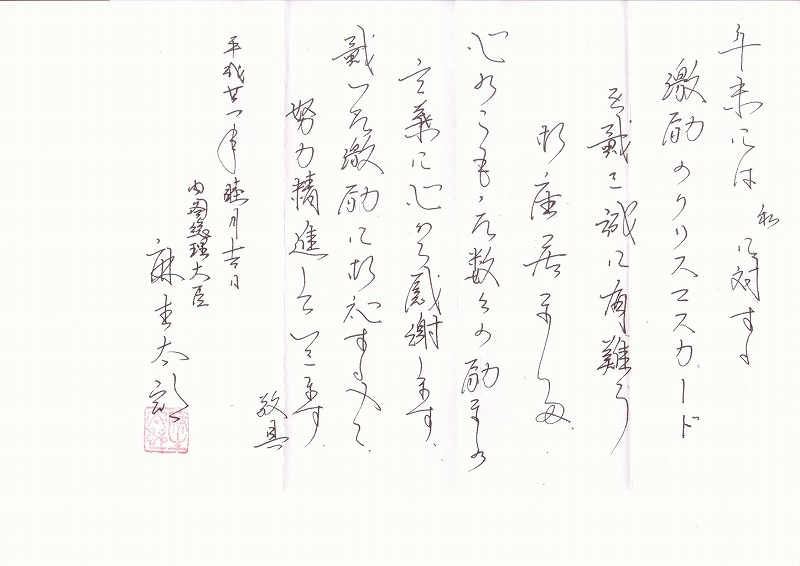 年末には私に対する
激励のクリスマスカード
を戴き誠に有難う
御座居ました
心のこもった数々の励ましの
言葉に心から感謝します
戴いた激励に御応すべく
努力精進していきます
敬具
平成廿一年睦月吉日
内閣総理大臣
麻生太郎